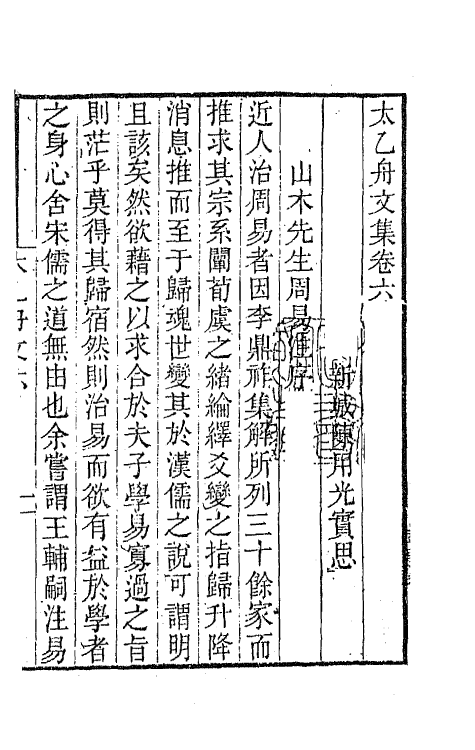 太乙舟文集卷六
新城陳用光實思
山木先生周易注序
近人治周易者因李鼎祚集解所列三十餘家而
推求其宗系闡荀虞之緒綸繹爻變之指歸升降
消息推而至于歸魂世變其於漢儒之說可謂明
且該矣然欲藉之以求合於夫子學易寡過之旨
則茫乎莫得其歸宿然則治易而欲有益於學者
之身心舍宋儒之道無由也余嘗謂王輔嗣注易
太乙舟文六
一